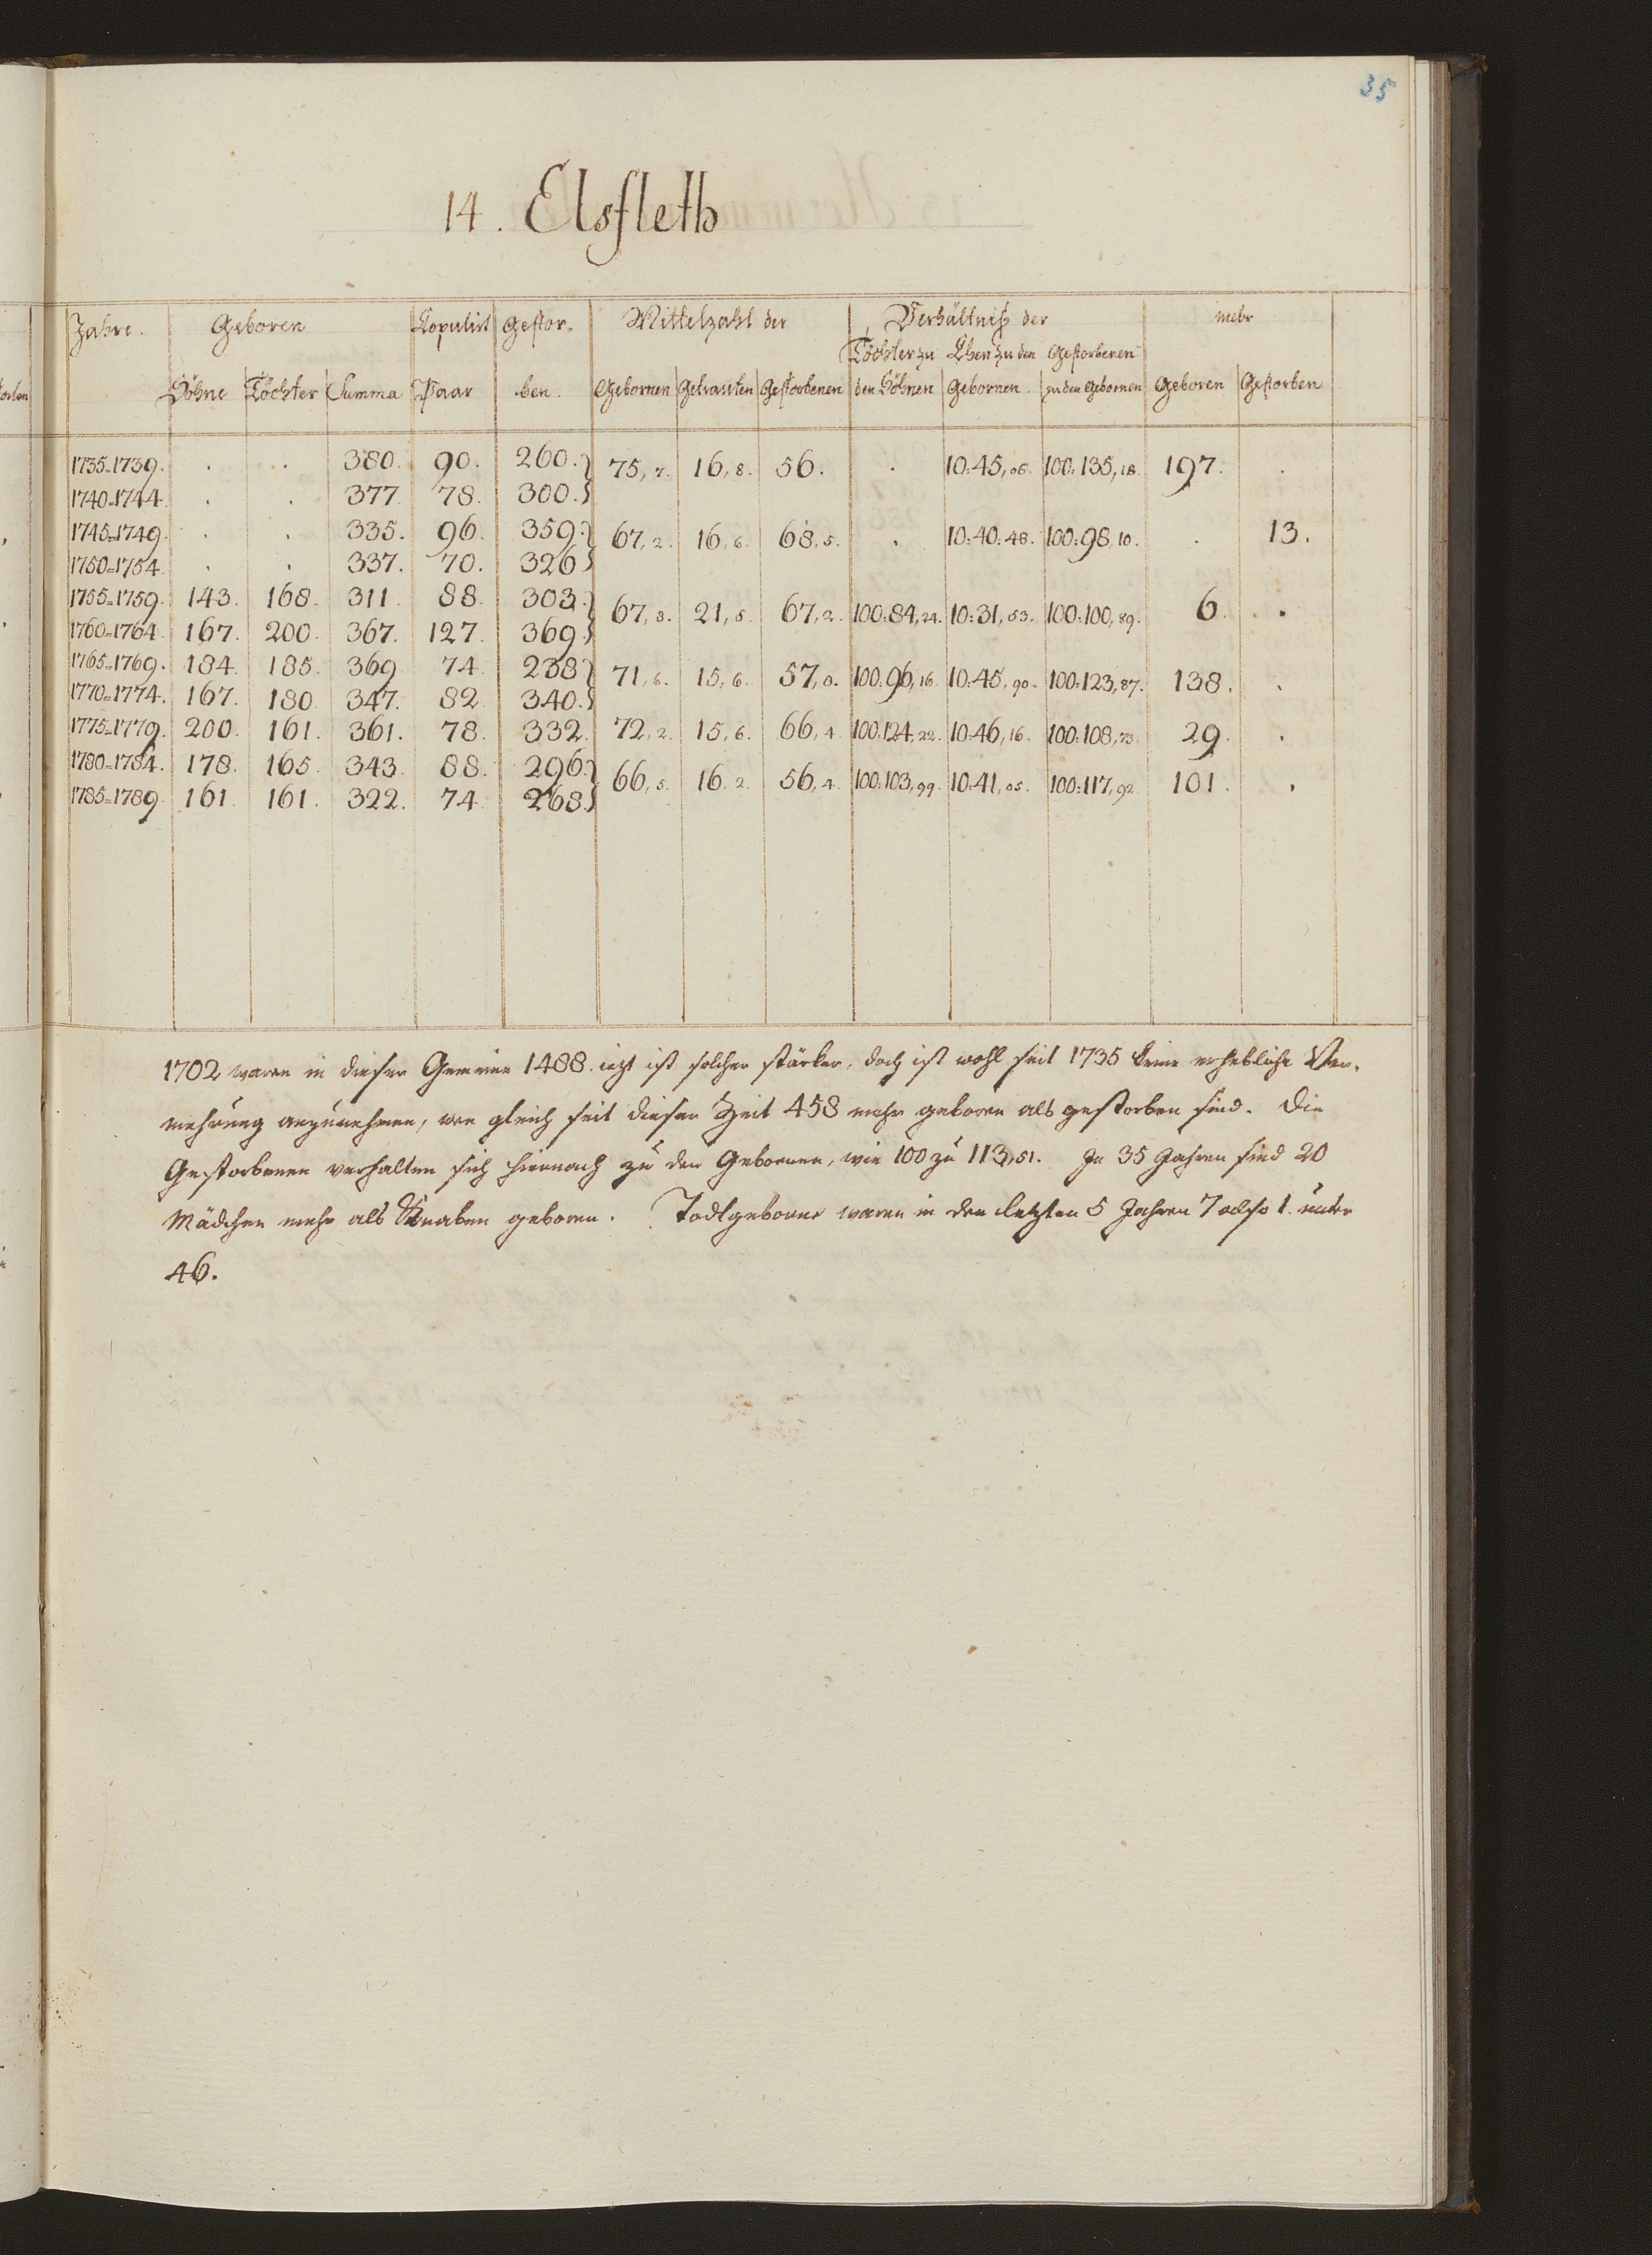 35
14. Elsfleth
Jahre. Geboren Kopulirt Gestor. Mittelzahl der Verhältniß der mehr
Töchter zu Ehen zu den Gestorbenen
Söhne Töchter Summa Paar ben. Gebornen Getrauten Gestorbenen den Söhnen Gebornen. zu den Gebornen Geboren Gestorben
1735=1739. . . 380. 90. 260. 75,7. 16,8. 56. . 10:45,06. 100:135,18. 197. .
1740=1744. . . 377. 78. 300.
1745=1749. . . 335. 96. 359. 67,2. 16,6. 68,5. . 10:40:48. 100:98,10. . 13.
1750=1754. . . 337. 70. 326
1755=1759. 143. 168. 311. 88. 303. 67,8. 21,5. 67,2. 100:84,24. 10:31,53. 100:100,89. 6. .
1760=1764. 167. 200. 367. 127. 369.
1765=1769. 184. 185. 369 74. 238 71,6. 15,6. 57,8. 100:96,16. 10:45,90. 100:123,87. 138. .
1770=1774. 167. 180. 347. 82 340.
1775=1779. 200. 161. 361. 78. 332. 72,2. 15,6. 66,4. 100:124,22. 10:46,16. 100:108,73. 29. .
1780=1784. 178. 165. 343. 88. 296. 66,5. 16,2. 56,4. 100:103,99. 10:41,05. 100:117,92. 101. .
1785=1789 161. 161. 322. 74. 268.
1702 waren in dieser Gemeine 1488. itzt ist solcher stärker, doch ist wohl seit 1735 keine erhebliche Ver-
mehrung anzunehmen, wen gleich seit dieser Zeit 458 mehr geboren als gestorben sind. Die
Gestorbenen verhalten sich hiernach zu den Gebornen, wie 100 zu 113,51. In 35 Jahren sind 20
Mädchen mehr als Knaben geboren. Todtgeborne waren in den letzten 5 Jahren 7 also 1. unter
46.